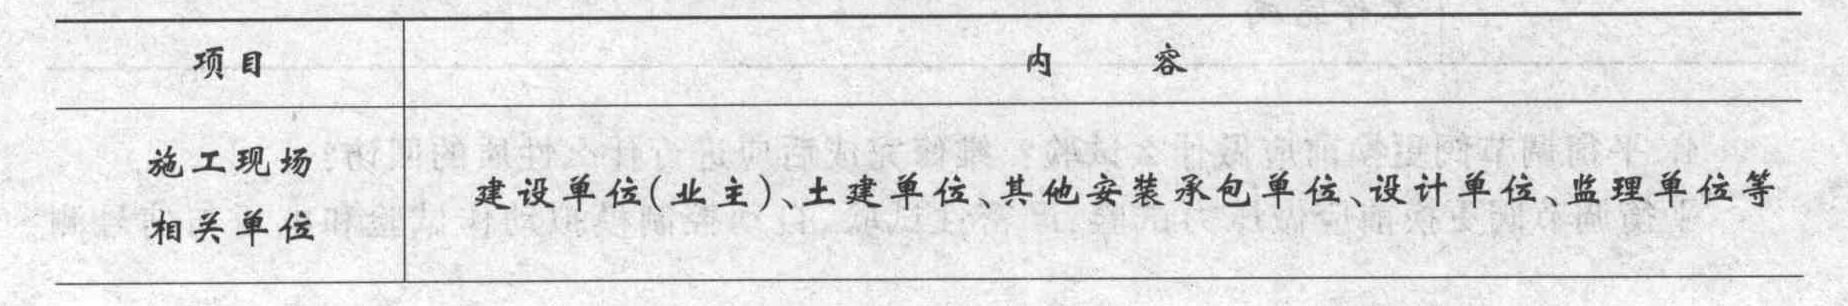 项目
内 容
施工现场
相关单位
建设单位(业主)、土建单位、其他安装承包单位、设计单位、监理单位等